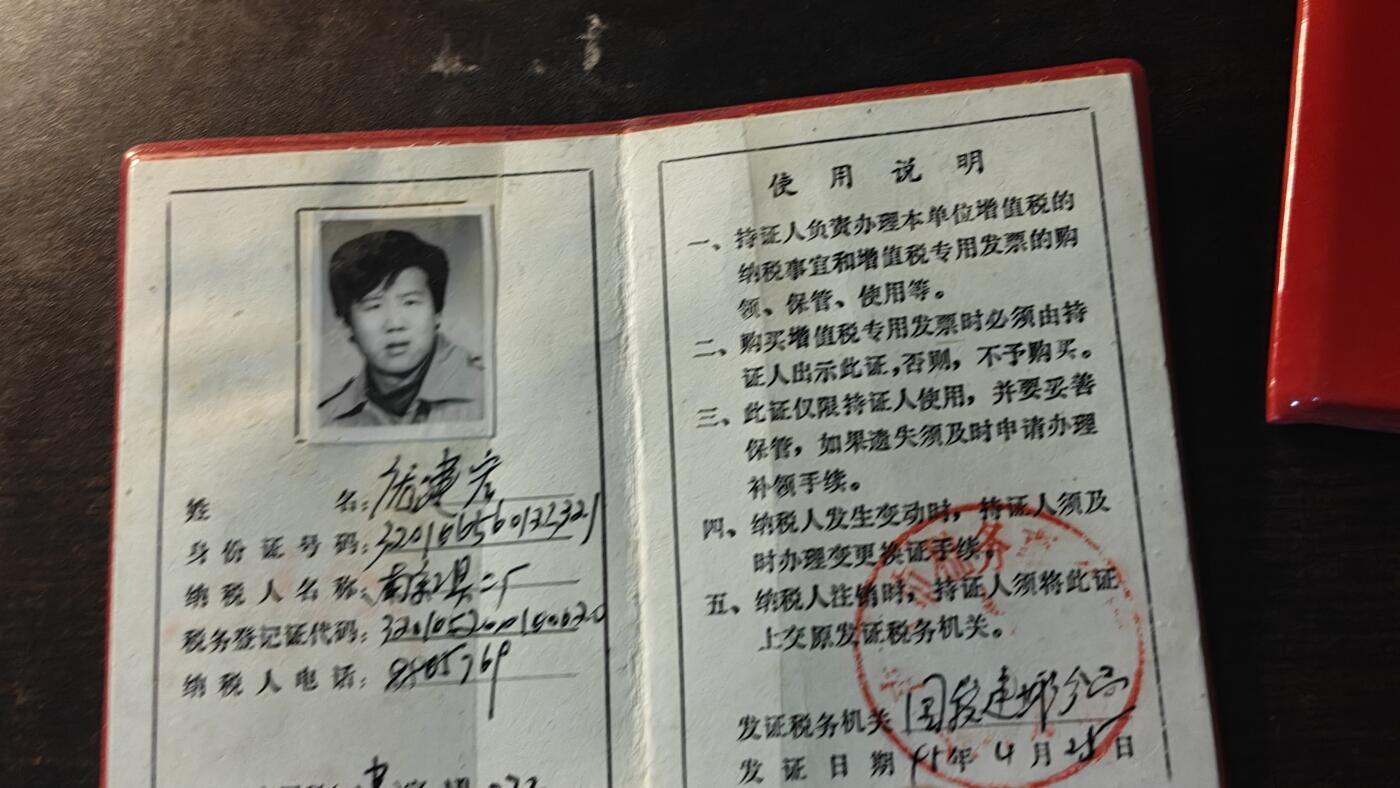 姓 名：
身份证号码：320106560132321
纳税人名称：南京工具二厂
税务登记证代码：
纳税人电话：
使用说明
一、持证人负责办理本单位增值税的
纳税事宜和增值税专用发票的购
领、保管、使用等。
二、购买增值税专用发票时必须由持
证人出示此证，否则，不予购买。
三、此证仅限持证人使用，并要妥善
保管，如果遗失须及时申请办理
补领手续。
四、纳税人发生变动时，持证人须及
时办理变更换证手续。
五、纳税人注销时，持证人须将此证
上交原发证税务机关。
发证税务机关
发证日期 95年4月25日